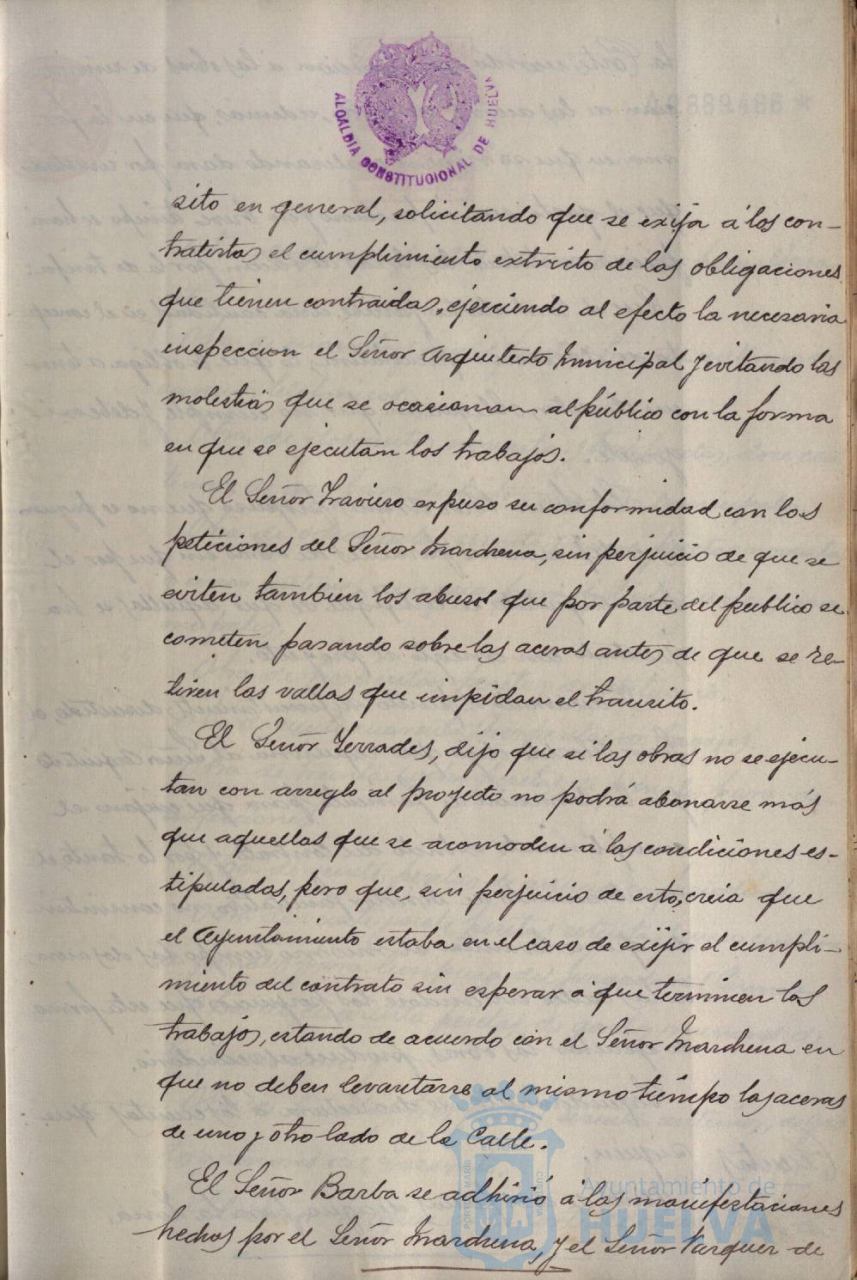 ALCALDIA CONSTITUCIONAL DE HUELVA
sito en general, solicitando que se exija á los con-
tratistas el cumplimiento extricto de las obligaciones
que tienen contraidas, ejerciendo al efecto la necesaria
inspeccion el Señor Arquitecto Municipal y evitando las
molestias que se ocasionan al público con la forma
en que se ejecutan los trabajos.
El Señor Travieso expuso su conformidad con las
peticiones del Señor Marchena, sin perjuicio de que se
eviten tambien los abusos que por parte del publico se
cometen pasando sobre las aceras antes de que se re-
tiren las vallas que impidan el transito.
El Señor Terrades, dijo que si las obras no se ejecu-
tan con arreglo al proyecto no podrá abonarse más
que aquellas que se acomoden á las condiciones es-
tipuladas, pero que, sin perjuicio de esto, creia que
el Ayuntamiento estaba en el caso de exijir el cumpli-
miento del contrato sin esperar á que terminen los
trabajos, estando de acuerdo con el Señor Marchena en
que no deben levantarse al mismo tiempo las aceras
de uno y otro lado de la Calle.
El Señor Barba se adhirió á las manifestaciones
hechas por el Señor Marchena, y el Señor Vazquez de
Ayuntamiento de
HUELVA